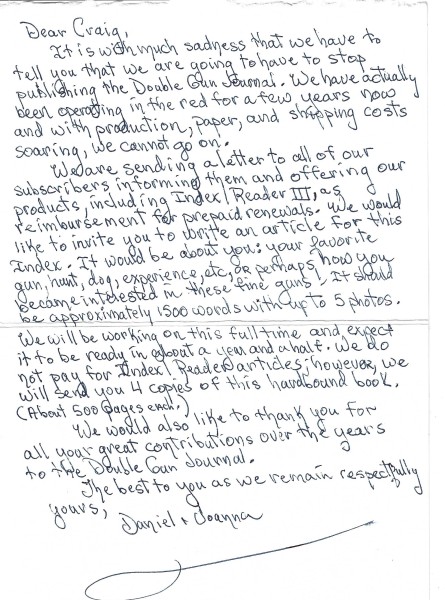 Dear Craig,
It is with much sadness that we have to
tell you that we are going to have to stop
publishing the Double Gun Journal. We have actually
been operating in the red for a few years now
and with production, paper, and shipping costs
soaring, we cannot go on.
We are sending a letter to all of our
subscribers informing them and offering our
products, including Index/Reader III, as
reimbursement for prepaid renewals. We would
like to invite you to write an article for this
Index. It would be about you: your favorite
gun, hunt, dog, experience, etc, or perhaps, how you
became interested in these fine guns. It should
be approximately 1500 words with up to 5 photos.
We will be working on this full time and expect
it to be ready in about a year and a half. We do
not pay for Index/Reader articles; however, we
will send you 4 copies of this hardbound book.
(About 500 pages each.)
We would also like to thank you for
all your great contributions over the years
to the Double Gun Journal.
The best to you as we remain respectfully
yours,
Daniel + Joanna